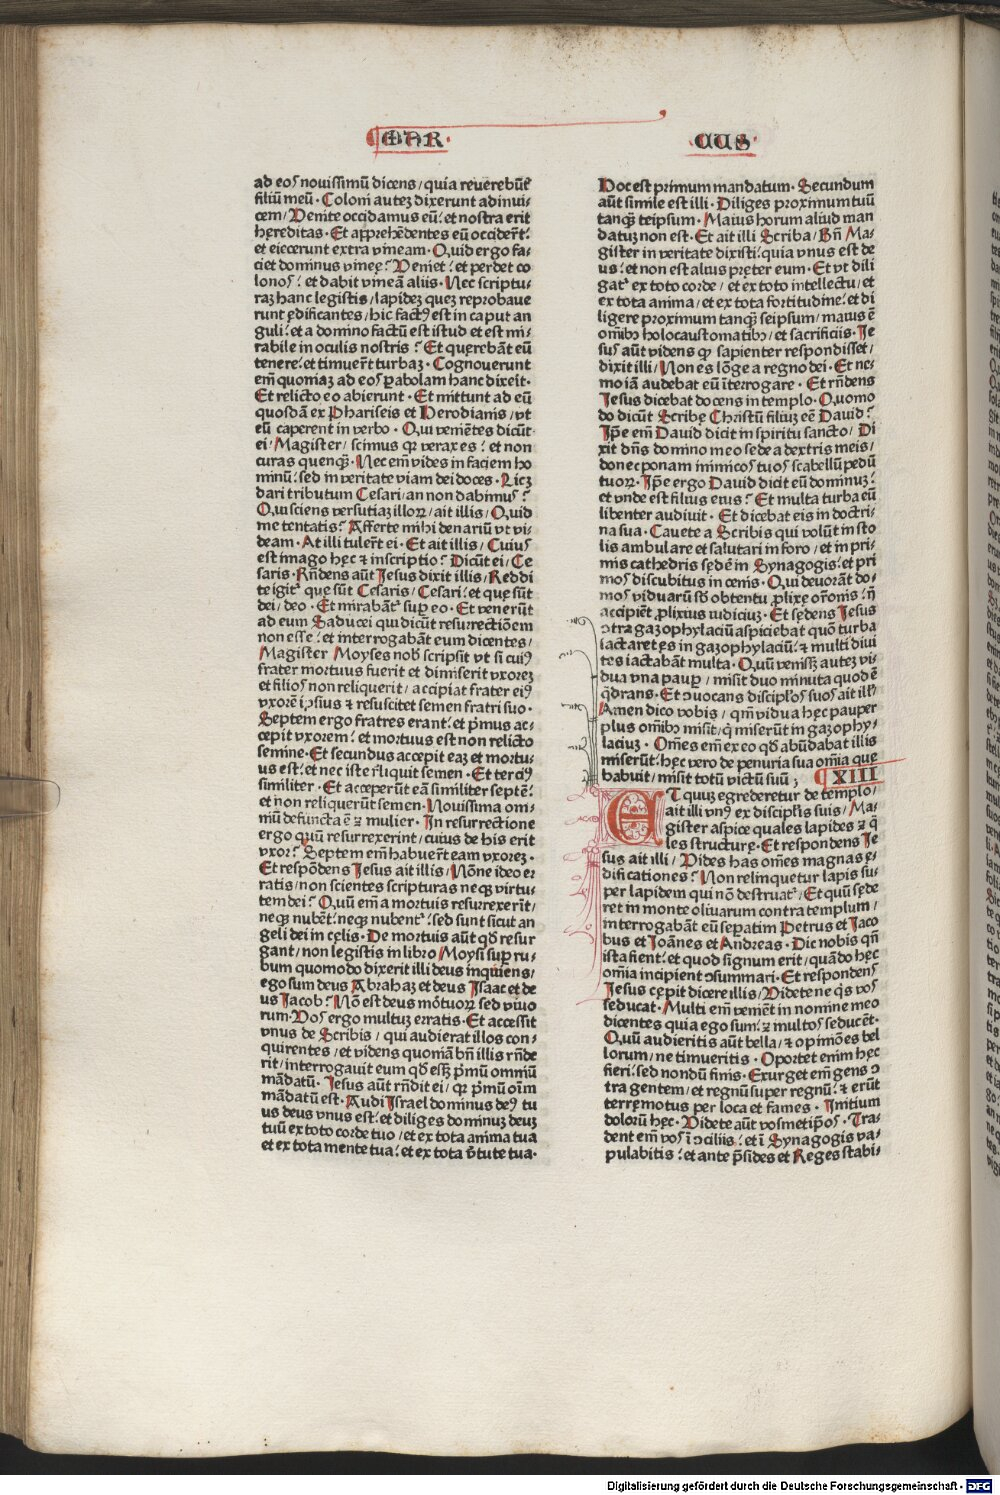 MAR
CUS
ad eos nouissimū dicens / quia reuerebūt̄
filiū meū · Coloni autez dixerunt ad inui⸗
cem / Venite occidamus eū : et nostra erit
hęreditas · Et apprehēdentes eū occider̄t :
et eiecerunt extra vineam · Quid ergo fa⸗
ciet dominus vineę ? Veniet : et perdet co
lonos : et dabit vineā aliis · Nec scriptu⸗
raz hanc legistis / lapidez quez reprobaue
runt ędificantes / hic fact⁹ est in caput an
guli : et a domino factū est istud et est mi⸗
rabile in oculis nostris ? Et querebāt eū
tenere : et timuer̄t turbaz · Cognouerunt
em̄ quoniaz ad eos ꝑabolam hanc dixeit ·
Et relicto eo abierunt · Et mittunt ad eū
quosdā ex Phariseis et Herodianis / vt
eū caperent in verbo · Qui veniētes dicūt
ei / Magister / scimus qꝛ verax es : et non
curas quenqꝫ · Nec em̄ vides in faciem ho
minū : sed in veritate viam dei doces · Licz
dari tributum Cesari / an non dabimus ?
Qui sciens versutiaz illoꝝ / ait illis / Quid
me tentatis ? Afferte mihi denariū vt vi⸗
deam · At illi tuler̄t ei · Et ait illis / Cuius
est imago hęc ⁊ inscriptio ? Dicūt ei / Ce
saris · Rn̄dens aūt Jesus dixit illis / Reddi
te igit᷑ quę sūt Cesaris / Cesari : et quę sūt
dei / deo · Et mirabāt᷑ suꝑ eo · Et venerūt
ad eum Saducei qui dicūt resurrectiōem
non esse : et interrogabāt eum dicentes /
Magister Moyses nob̄ scripsit vt si cui⁹
frater mortuus fuerit et dimiserit vxorez
et filios non reliquerit / accipiat frater ei⁹
vxorē ipsius ⁊ resuscitet semen fratri suo ·
Septem ergo fratres erant : et pͥmus ac⸗
cepit vxorem : et mortuus est non relicto
semine · Et secundus accepit eaz et mortu⸗
us est : et nec iste r̄liquit semen · Et terci⁹
similiter · Et acceperūt eā similiter septē :
et non reliquerūt semen · Nouissima om⸗
niū defuncta ē ⁊ mulier · In resurrectione
ergo quū resurrexerint / cuius de his erit
vxor ? Septem em̄ habuer̄t eam vxorez ·
Et respōdens Jesus ait illis / Nōne ideo er
ratis / non scientes scripturas neqꝫ virtu⸗
tem dei ? Quū em̄ a mortuis resurrexerīt /
neqꝫ nubēt : neqꝫ nubent᷑ : sed sunt sicut an
geli dei in cęlis · De mortuis aūt qd̄ resur
gant / non legistis in libro Moysi suꝑ ru⸗
bum quomodo dixerit illi deus inquiens /
ego sum deus Abrahaz et deus Isaac et de
us Jacob ? Nō est deus mōtuoꝝ sed viuo
rum · Vos ergo multuz erratis · Et accessit
vnus de Scribis / qui audierat illos con⸗
quirentes / et videns quoniā bn̄ illis rn̄de
rit / interrogauit eum qd̄ essꝫ pͥmū omniū
mādatū · Jesus aūt rn̄dit ei / qꝛ pͥmū oīm
mādatū est · Audi Israel dominus de⁹ tu
us deus vnus est : et diliges dominuz deuz
tuū ex toto corde tuo / et ex tota anima tua
et ex tota mente tua : et ex tota v̄tute tua ·
Hoc est primum mandatum · Secundum
aūt simile est illi · Diliges proximum tuū
tanqꝫ teipsum · Maius horum aliud man
datuz non est · Et ait illi Scriba / Bn̄ Ma⸗
gister in veritate dixisti : quia vnus est de
us : et non est alius pręter eum · Et vt dili
gat᷑ ex toto corde / et ex toto intellectu / et
ex tota anima / et ex tota fortitudine : et di
ligere proximum tanqꝫ seipsum / maius ē
om̄ibꝫ holocaustomatibꝫ / et sacrificiis · Je
sus aūt videns qꝙ sapienter respondisset /
dixit illi / Non es lōge a regno dei · Et ne⸗
mo iā audebat eū īterrogare · Et rn̄dens
Jesus dicebat docens in templo · Quomo
do dicūt Scribę Christū filiuz eē Dauid ?
Ip̄e em̄ Dauid dicit in spiritu sancto / Di
xit dn̄s domino meo sede a dextris meis /
donec ponam inimicos tuos scabellū pedū
tuoꝝ · Ip̄e ergo Dauid dicit eū dominuz :
et vnde est filius eius ? Et multa turba eū
libenter audiuit · Et dicebat eis in doctri⸗
na sua · Cauete a Scribis qui volūt in sto
lis ambulare et salutari in foro / et in pri⸗
mis cathedris sędē in Synagogis : et pri
mos discubitus in cenis · Qui deuorāt do⸗
mos viduarū sb̄ obtentu ꝓlixę or̄onis : n̄
accipiēt ꝓlixius iudiciuz · Et sędens Jesus
ↄtra gazophylaciū aspiciebat quō turba
iactaret ęs in gazophylaciū : ⁊ multi diui
tes iactabāt multa · Quū venissꝫ autez vi⸗
dua vna pauꝑ / misit duo minuta quod ē
q̄drans · Et ꝯuocans discipl̄os suos ait ill᷑
Amen dico vobis / qm̄ vidua hęc pauper
plus om̄ibꝫ misit / q̇ miserūt in gazophy⸗
laciuz · Om̄es em̄ ex eo qd̄ abūdabat illis
miserūt : hęc vero de penuria sua om̄ia quę
habuit / misit totū victū suū ;
XIII
ET quuz egrederetur de templo /
ait illi vn⁹ ex discipl̄is suis / Ma⸗
gister aspice quales lapides ⁊ q̄
les structurę · Et respondens Je
sus ait illi / Vides has om̄es magnas ę⸗
dificationes ? Non relinquetur lapis su⸗
per lapidem qui nō destruat᷑ / Et quū sęde
ret in monte oliuarum contra templum /
interrogabāt eū seꝑatim Petrus et Jaco
bus et Joānes et Andreas · Dic nobis qn̄
ista fient : et quod signum erit / quādo hęc
om̄ia incipient ↄsummari · Et respondens
Jesus cępit dicere illis / Videte ne q̇s vos
seducat · Multi em̄ veniēt in nomine meo
dicentes quia ego sum : ⁊ multos seducēt ·
Quū audieritis aūt bella / ⁊ opiniōes bel
lorum / ne timueritis · Oportet enim hęc
fieri : sed nondū finis · Exurget em̄ gens ↄ
tra gentem / et regnū super regnū : ⁊ erūt
terręmotus per loca et fames · Initium
dolorū hęc · Videte aūt vosmetip̄os · Tra⸗
dent em̄ vos ī ↄciliis : et ī Synagogis va⸗
pulabitis : et ante p̄sides et Reges stabi⸗
Digitalisierung gefördert durch die Deutsche Forschungsgemeinschaft - DFG